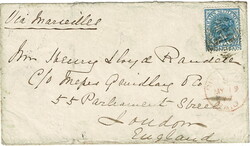 Via Marseilles
Wm Henry Lloyd
C/o Messrs Grindlay & Co
55 Parliament Street
London
England